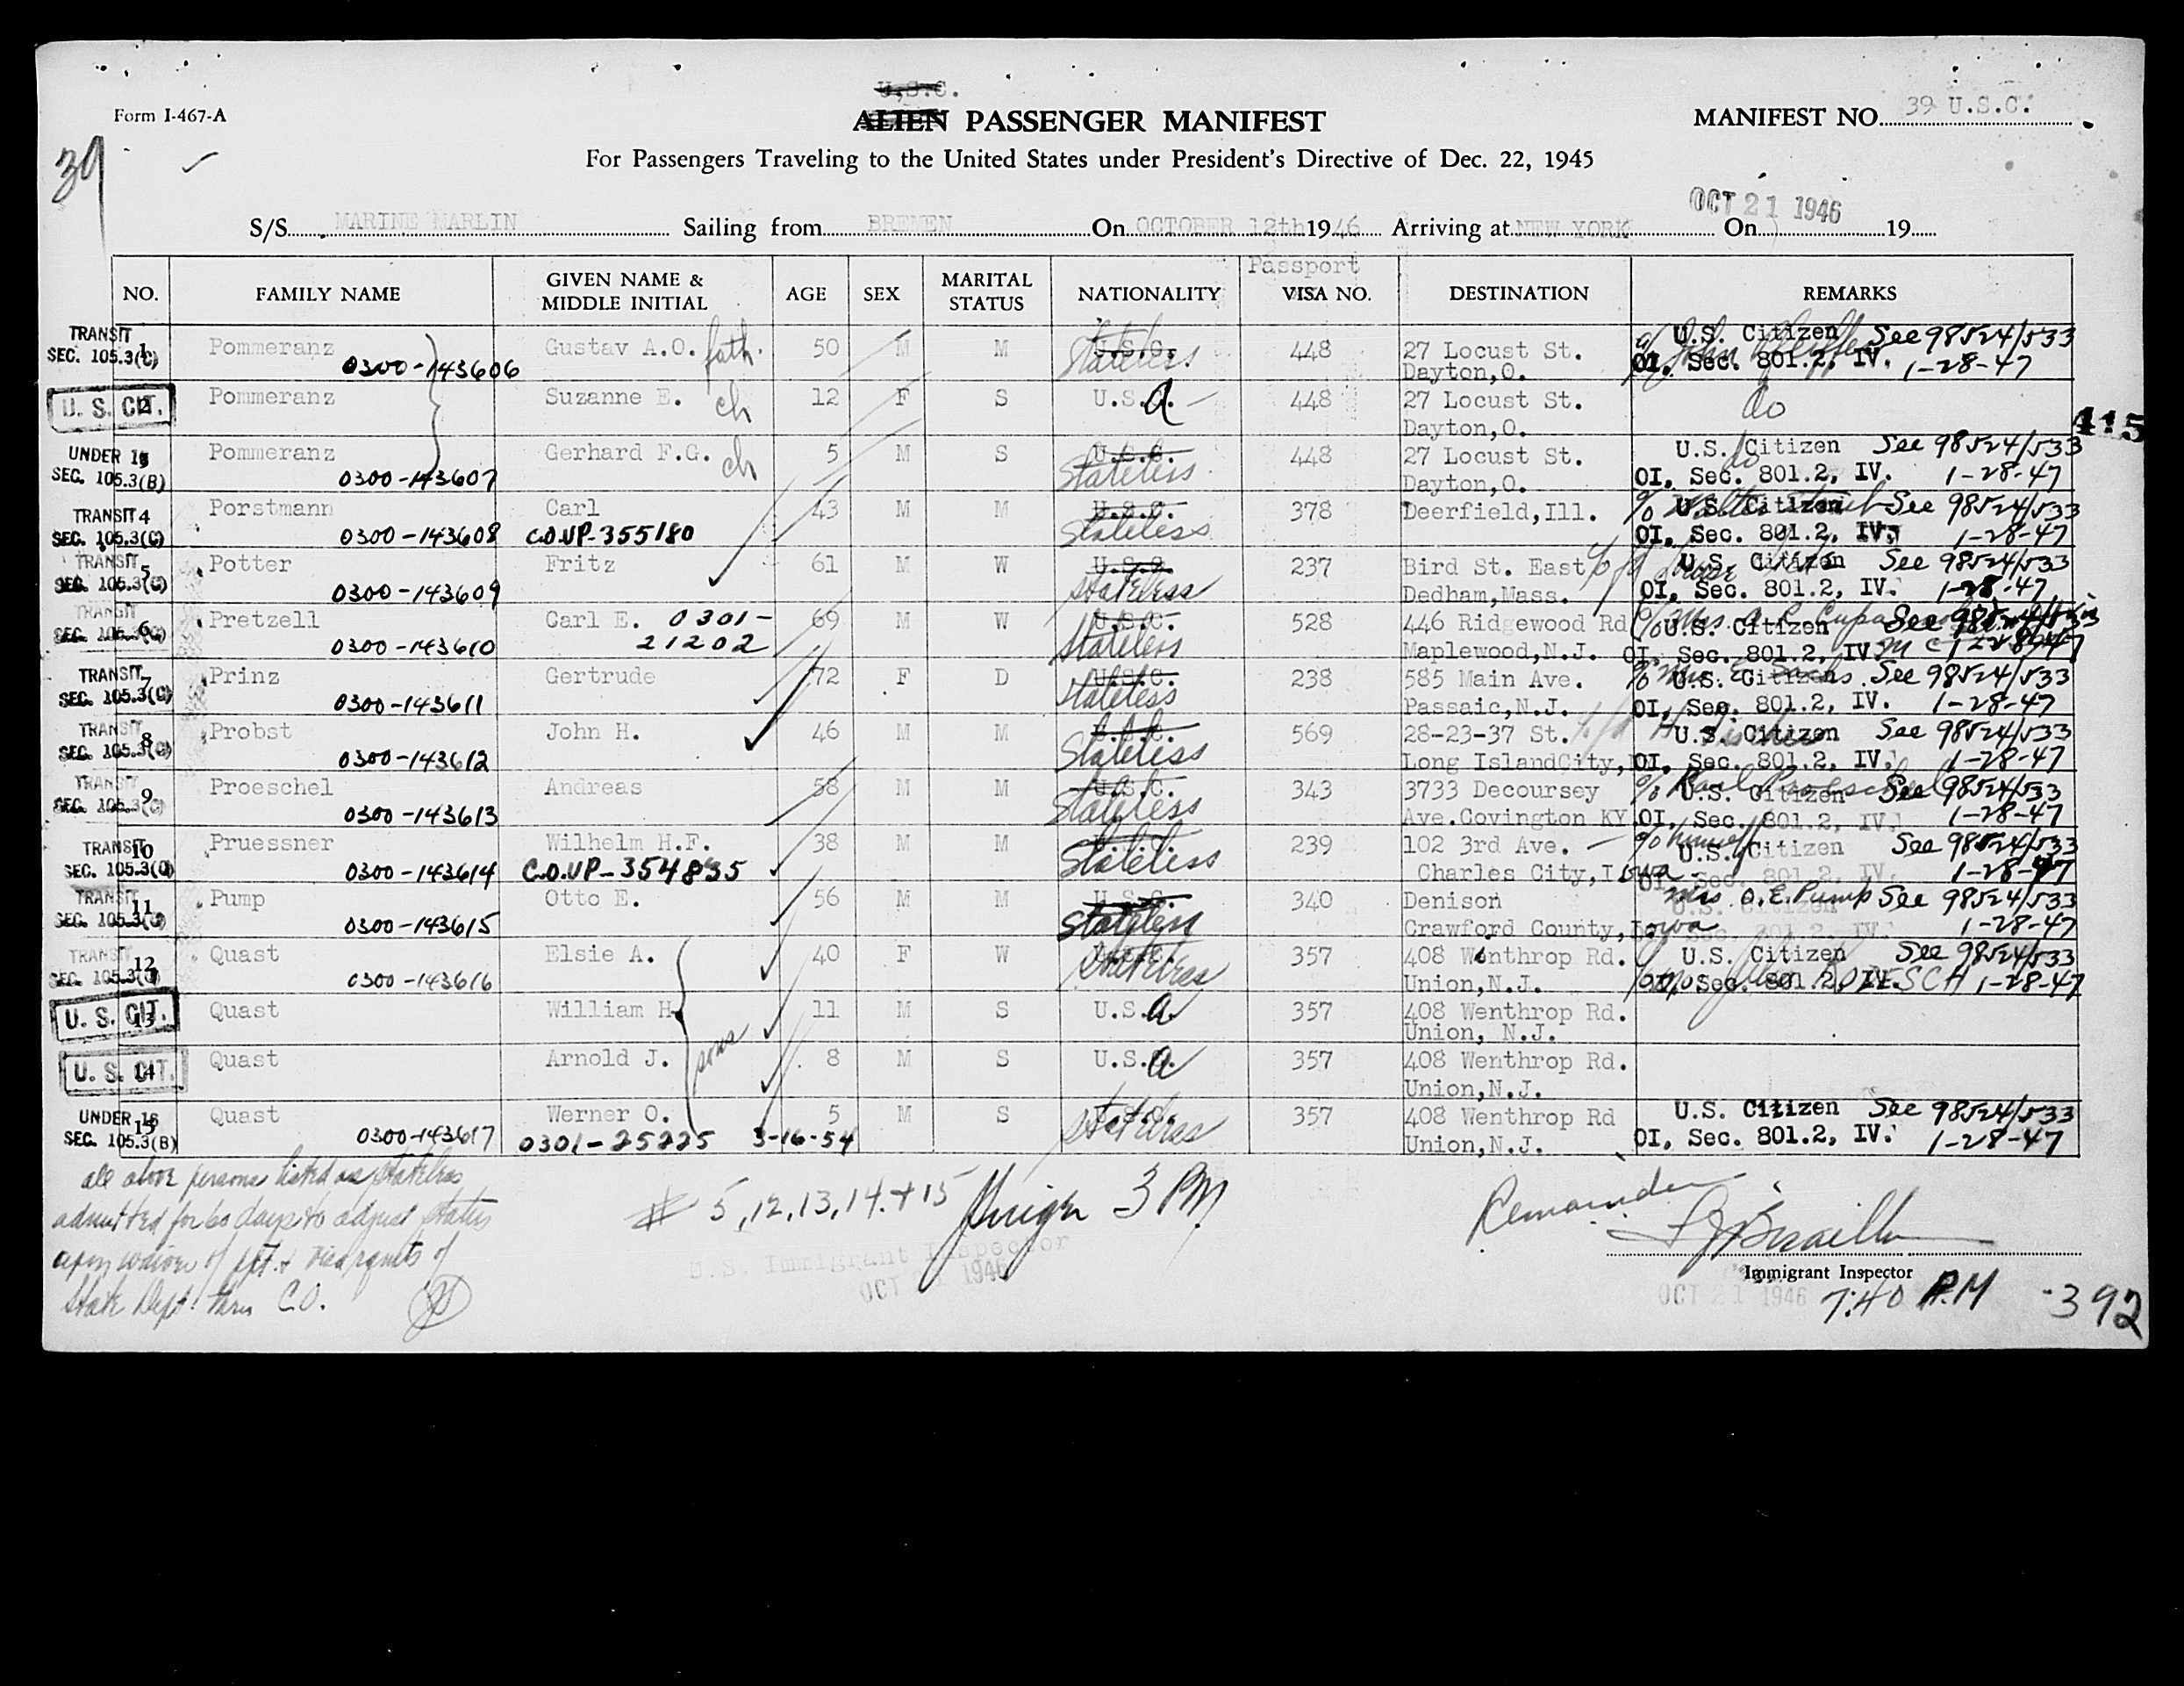 U.S.C.
Form I-467-A
ALIEN PASSENGER MANIFEST
MANIFEST NO. 39 U.S.C.
39
For Passengers Traveling to the United States under President's Directive of Dec. 22, 1945
OCT 21 1946
S/S MARINE MARLIN Sailing from BREMEN On OCTOBER 12th 1946 Arriving at NEW YORK On 19
Passport
NO. FAMILY NAME GIVEN NAME & MIDDLE INITIAL AGE SEX MARITAL STATUS NATIONALITY VISA NO. DESTINATION REMARKS
TRANSIT 1 Pommeranz Gustav A.O. fath. 50 M M U.S.C. Stateless 448 27 Locust St. U.S. Citizen See 98524/533
SEC. 105.3(C) 0300-143606 Dayton,O. OI. Sec. 801.2, IV. 1-28-47
U. S. CIT. 2 Pommeranz Suzanne E. ch 12 F S U.S.A. 448 27 Locust St. do
Dayton,O.
415
UNDER 16 3 Pommeranz Gerhard F.G. ch 5 M S U.S.C. Stateless 448 27 Locust St. U.S. Citizen See 98524/533
SEC. 105.3(B) 0300-143607 Dayton,O. do OI. Sec. 801.2, IV. 1-28-47
TRANSIT 4 Porstmann Carl 43 M M U.S.C. Stateless 378 Deerfield,Ill. U.S. Citizen See 98524/533
SEC. 105.3(C) 0300-143608 C.O.VP-355180 OI. Sec. 801.2, IV. 1-28-47
TRANSIT 5 Potter Fritz 61 M W U.S.C. Stateless 237 Bird St. East U.S. Citizen See 98524/533
SEC. 105.3(C) 0300-143609 Dedham,Mass. OI. Sec. 801.2, IV. 1-28-47
TRANSIT 6 Pretzell Carl E. 0301- 69 M W U.S.C. Stateless 528 446 Ridgewood Rd U.S. Citizen See 98524/533
SEC. 105.3(C) 0300-143610 21202 Maplewood,N.J. OI. Sec. 801.2, IV. 1-28-47
TRANSIT 7 Prinz Gertrude 72 F D U.S.C. Stateless 238 585 Main Ave. U.S. Citizen See 98524/533
SEC. 105.3(C) 0300-143611 Passaic,N.J. OI. Sec. 801.2, IV. 1-28-47
TRANSIT 8 Probst John H. 46 M M U.S.C. Stateless 569 28-23-37 St. U.S. Citizen See 98524/533
SEC. 105.3(C) 0300-143612 Long IslandCity, OI. Sec. 801.2, IV. 1-28-47
TRANSIT 9 Proeschel Andreas 58 M M U.S.C. Stateless 343 3733 Decoursey % Karl Proeschel U.S. Citizen See 98524/533
SEC. 105.3(C) 0300-143613 Ave.Covington KY. OI. Sec. 801.2, IV. 1-28-47
TRANSIT 10 Pruessner Wilhelm H.F. 38 M M U.S.C. Stateless 239 102 3rd Ave. % himself U.S. Citizen See 98524/533
SEC. 105.3(C) 0300-143614 C.O.VP-354835 Charles City,Iowa. OI. Sec. 801.2, IV. 1-28-47
TRANSIT 11 Pump Otto E. 56 M M U.S.C. Stateless 340 Denison Mrs O.E. Pump U.S. Citizen See 98524/533
SEC. 105.3(C) 0300-143615 Crawford County, Iowa Sec. 801.2, IV. 1-28-47
TRANSIT 12 Quast Elsie A. 40 F W U.S.C. Stateless 357 408 Winthrop Rd. U.S. Citizen See 98524/533
SEC. 105.3(C) 0300-143616 Union,N.J. OI. Sec. 801.2, IV. 1-28-47
U. S. CIT. 13 Quast William H. 11 M S U.S.A 357 408 Wenthrop Rd.
Union, N.J.
sons
U. S. CIT. 14 Quast Arnold J. 8 M S U.S.A 357 408 Wenthrop Rd.
Union,N.J.
UNDER 16 15 Quast Werner O. 5 M S U.S.C. Stateless 357 408 Wenthrop Rd U.S. Citizen See 98524/533
SEC. 105.3(B) 0300-143617 0301-25225 3-16-54 Union,N.J. OI. Sec. 801.2, IV. 1-28-47
all above persons listed as stateless
admitted for 60 days to adjust status
upon waiver of ppt. & visa rqmts of
State Dept. thru C.O.
# 5,12,13,14.+15 3 PM
Remainder
U.S. Immigrant Inspector
OCT 21 1946
Immigrant Inspector
OCT 21 1946 7:40 P.M
392